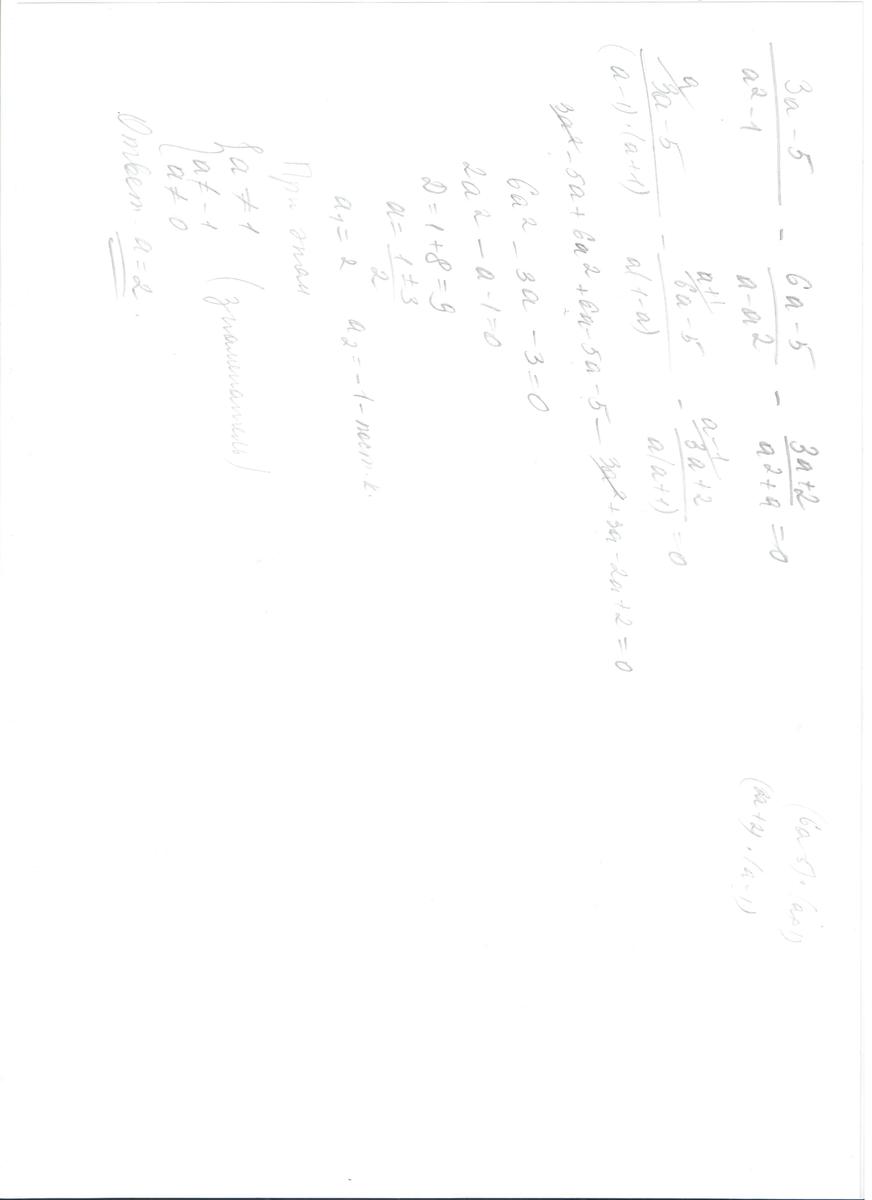 (3a-5)/(a²-1) - (6a-5)/(a-a²) - (3a+2)/(a²+a) = 0
a/ (3a-5)/((a-1)·(a+1)) - a+1/ (6a-5)/(a(1-a)) - a-1/ (3a+2)/(a(a+1)) = 0
3a² - 5a + 6a² + 6a - 5a - 5 - 3a² + 3a - 2a + 2 = 0
6a² - 3a - 3 = 0
2a² - a - 1 = 0
D = 1 + 8 = 9
a = (1 ± 3)/2
a₁ = 2 a₂ = -1 - пост. к.
При этом
{ a ≠ 1 (знаменатель)
{ a ≠ -1
{ a ≠ 0
Ответ a = 2.
(6a-5)·(a+1)
(3a+2)·(a-1)